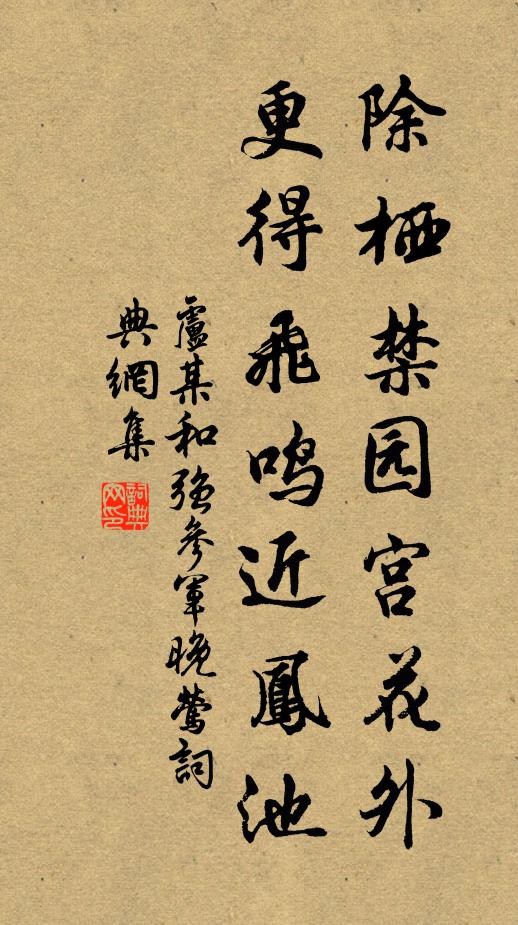 除栖禁园宫花外
更得飛鸣近鳳池
盧某和强參軍晚鶯詞
典網集
詞典網印